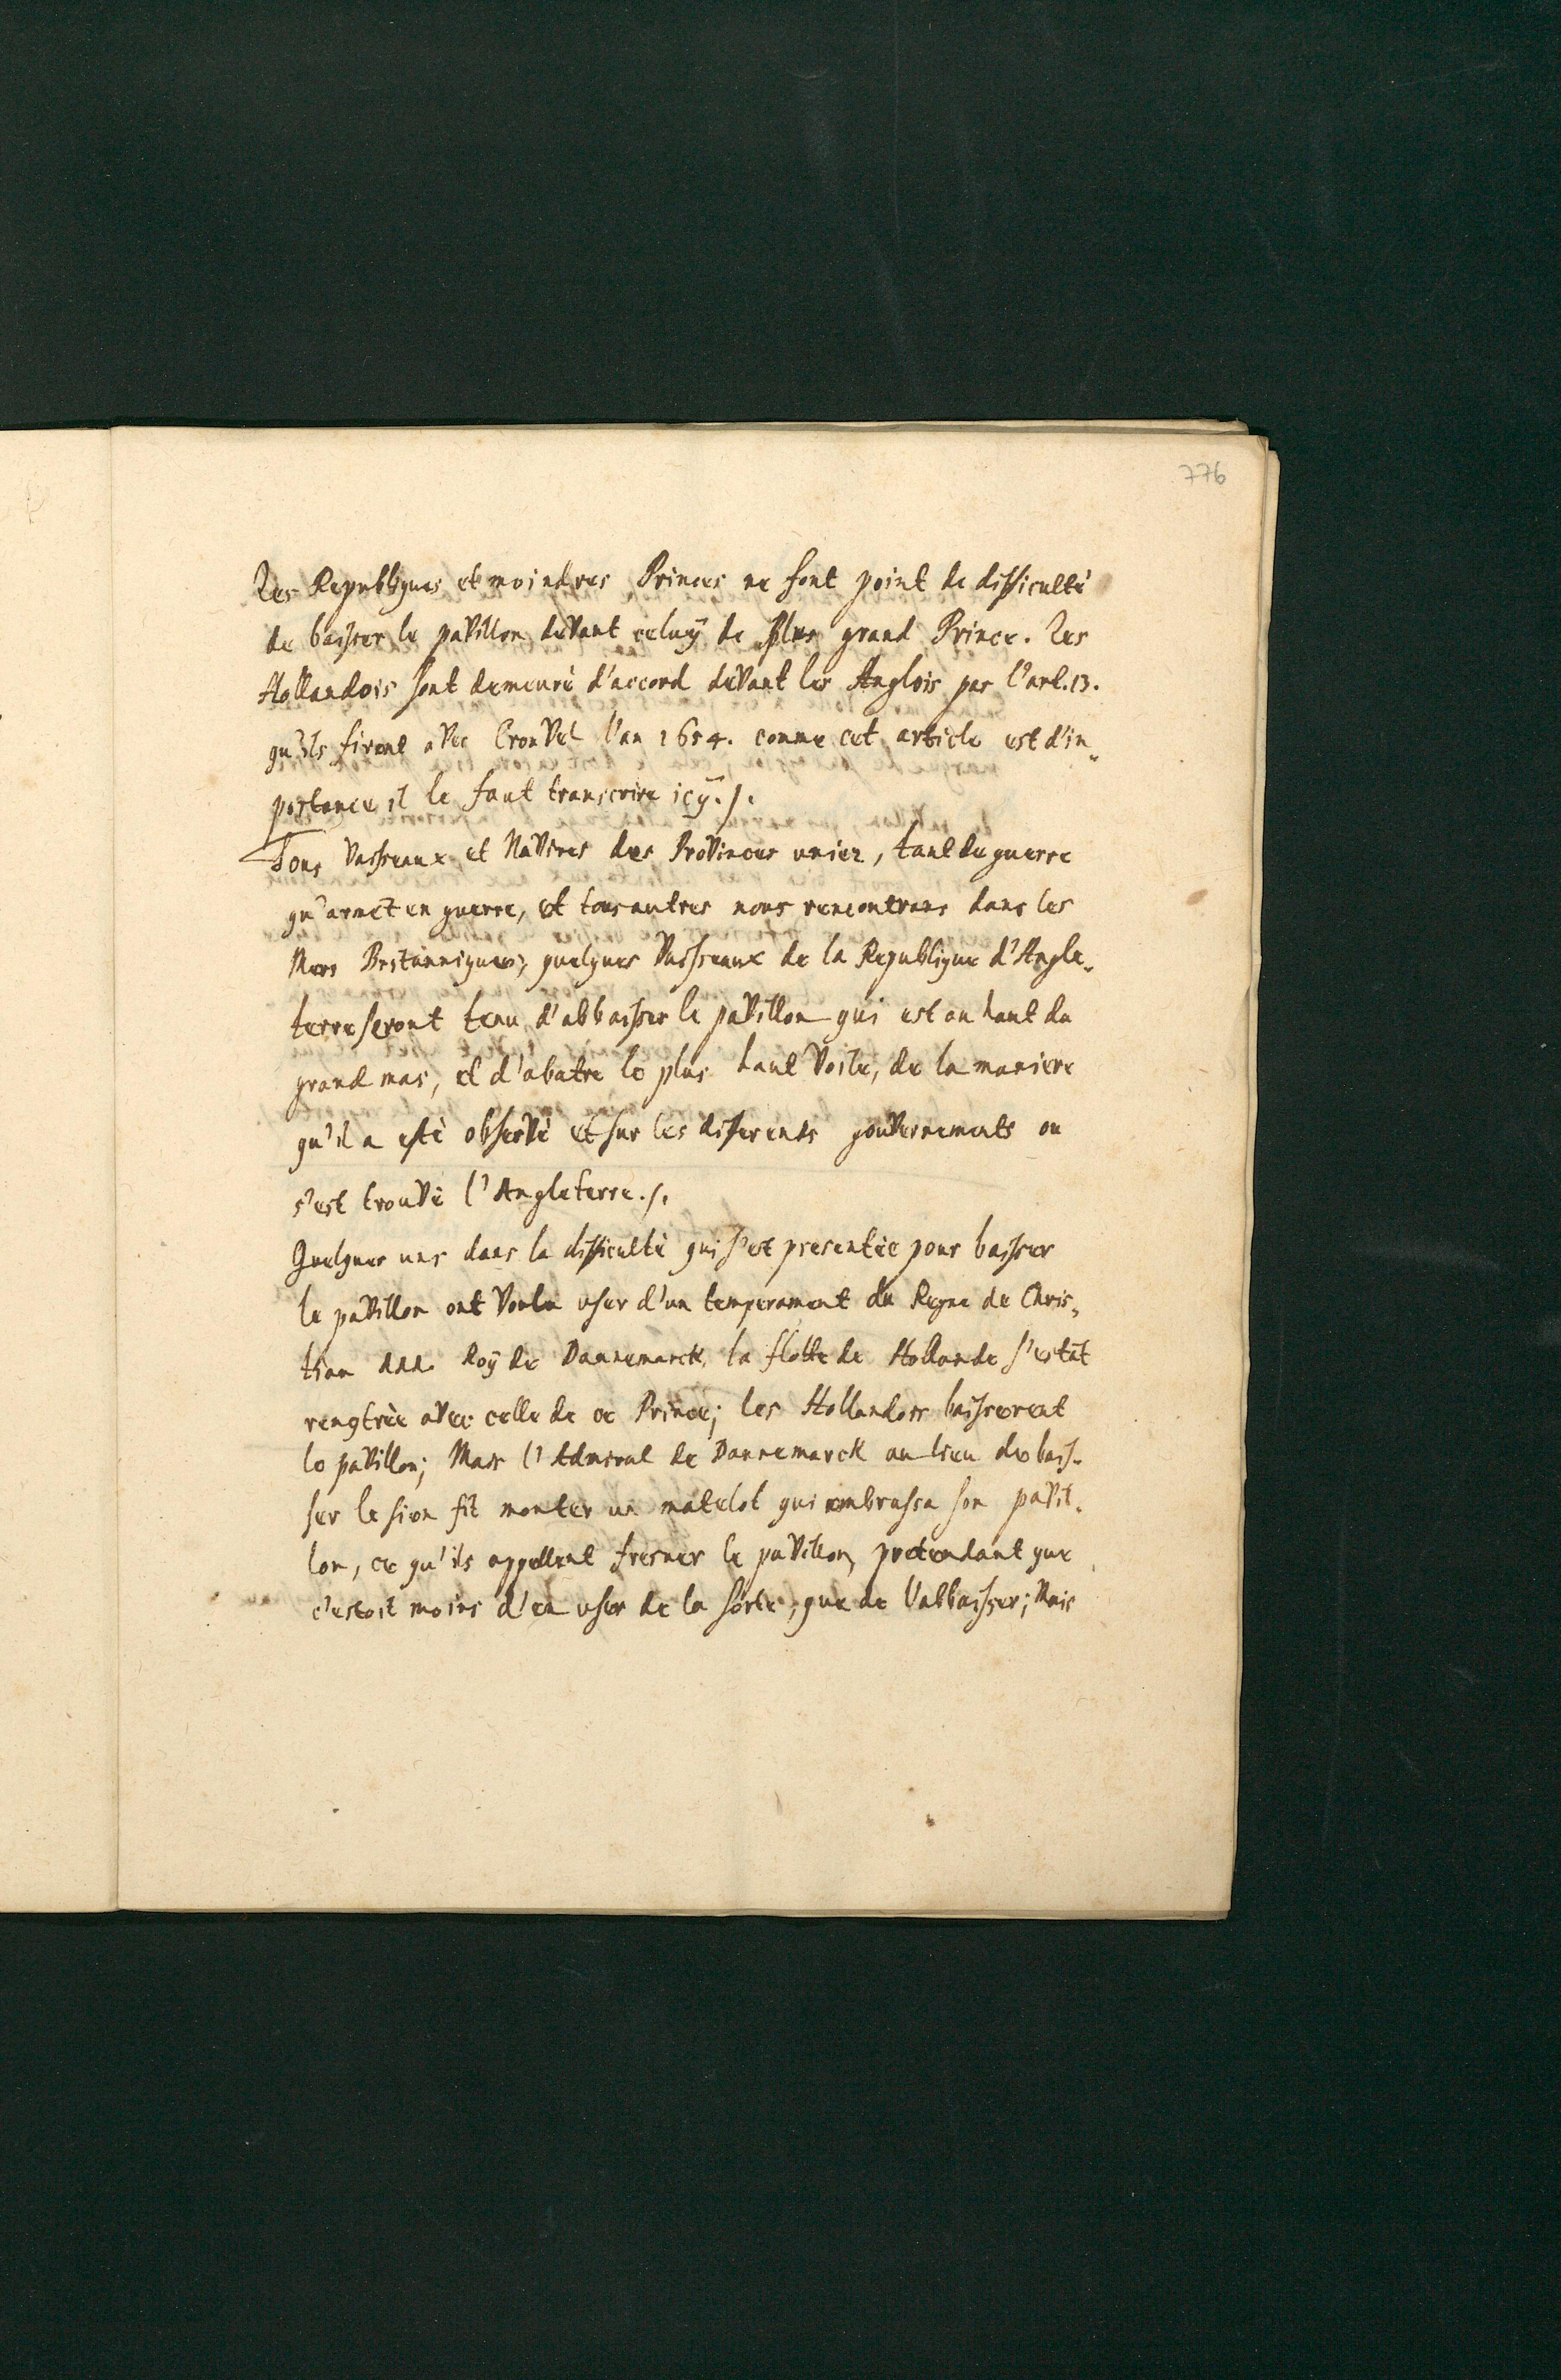 776
Les Republiques et moindres Princes ne font point de difficulté
de baisser le pavillon devant celuÿ de plus grand Prince. Les
Hollandois sont demeuré d'accord devant les Anglois par l'art. 13.
qu'ils firent avec Cronvel l'an 1654. comme cet article est d'in„
portance, il le faut transcrire icÿ./.
Tous Vaisseaux et Navires des Provinces unies, tant de guerre
qu'armez en guerre, et tous autres nous rencontrans dans les
Mers Britanniques, quelques Vaisseaux de la Republique d'Angle„
terre seront tenu d'abbaisser le pavillon qui est au haut du
grand mas, et d'abatre le plus haut Voile, de la maniere
qu'il a esté observé et sur les diferents gouvernements ou
s'est trouvé l'Angleterre./.
Quelques uns dans la difficulté qui s'est presentée pour baisser
le pavillon ont voulu user d'un temperament du Regne de Chris„
tian Roÿ de Dannemarck, la flotte de Hollande s'estāt
avec celle de ce Prince; les Hollandois baisserent
le pavillon; Mais l'Admiral de Dannemarck au lieu de bais„
ser le sien fit monter un matelot qui embrassa son pavil„
lon, ce qu'ils appellent fresner le pavillon, pretendant que
c'estoit moins d'en user de la sorte, que de l'abbaisser; Mais